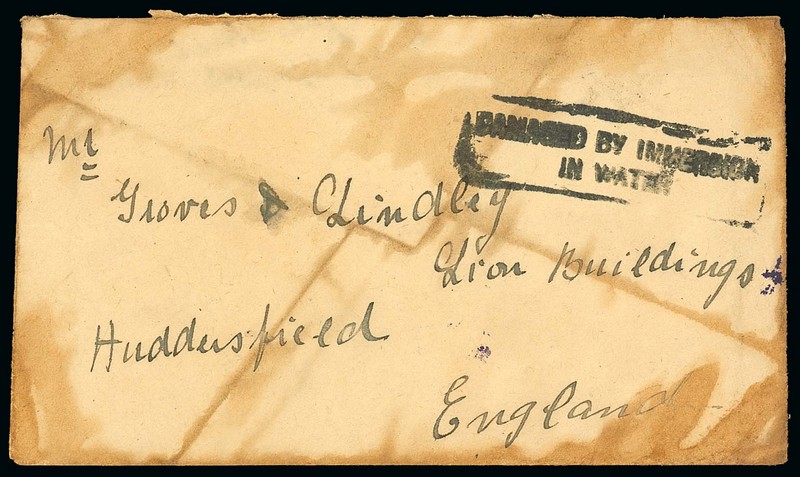 DAMAGED BY IMMERSION
IN WATER
Mr
Groves & Lindley
Lion Buildings
Huddersfield
England